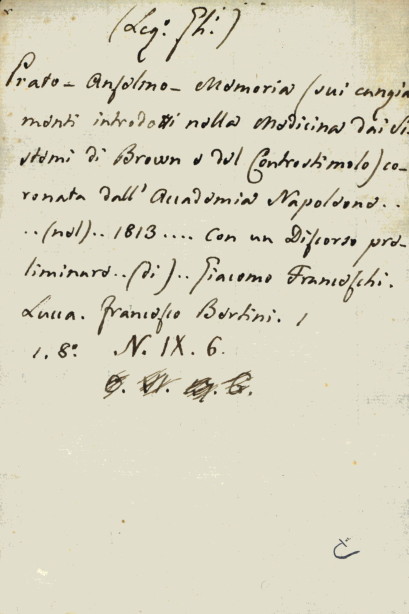 (Leg.º Ghi.)
Prato - Anselmo - Memoria (sui cangia
menti introdotti nella Medicina dai Si-
stemi di Brown e del Controstimolo) co-
ronata dall' Accademia Napoleone..
..(nel).. 1813.... con un Discorso pre-
liminare..(di).. Giacomo Franceschi.
Lucca. Francesco Bertini. 1
1. 8.º N. IX. 6.